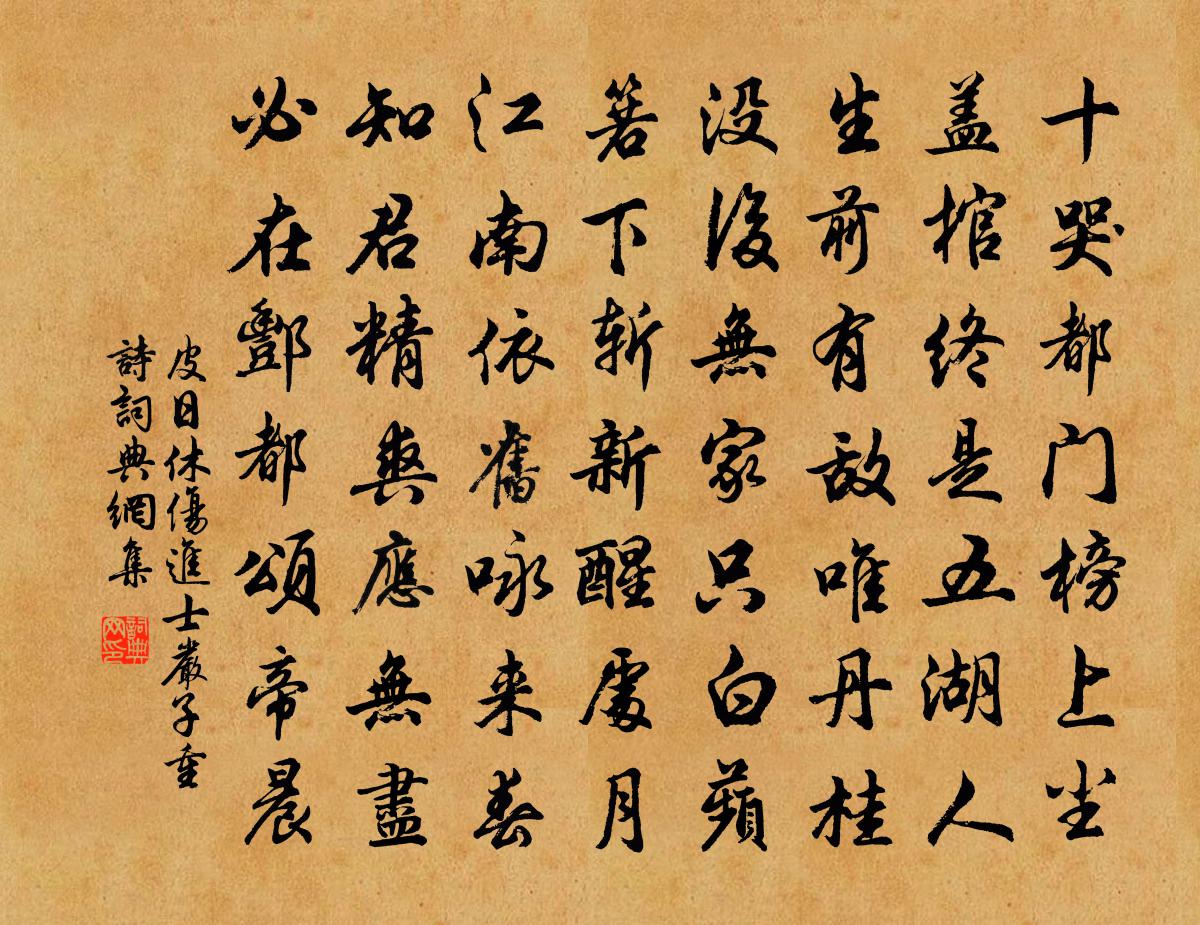 十哭都门榜上尘
盖棺終是五湖人
生前有敌唯丹桂
没後無家只白蘋
箬下斩新醒處月
江南依舊咏来春
知君精爽應無盡
必在酆都頌帝晨
皮日休傷進士嚴子重
詩詞典網集
詞典网印